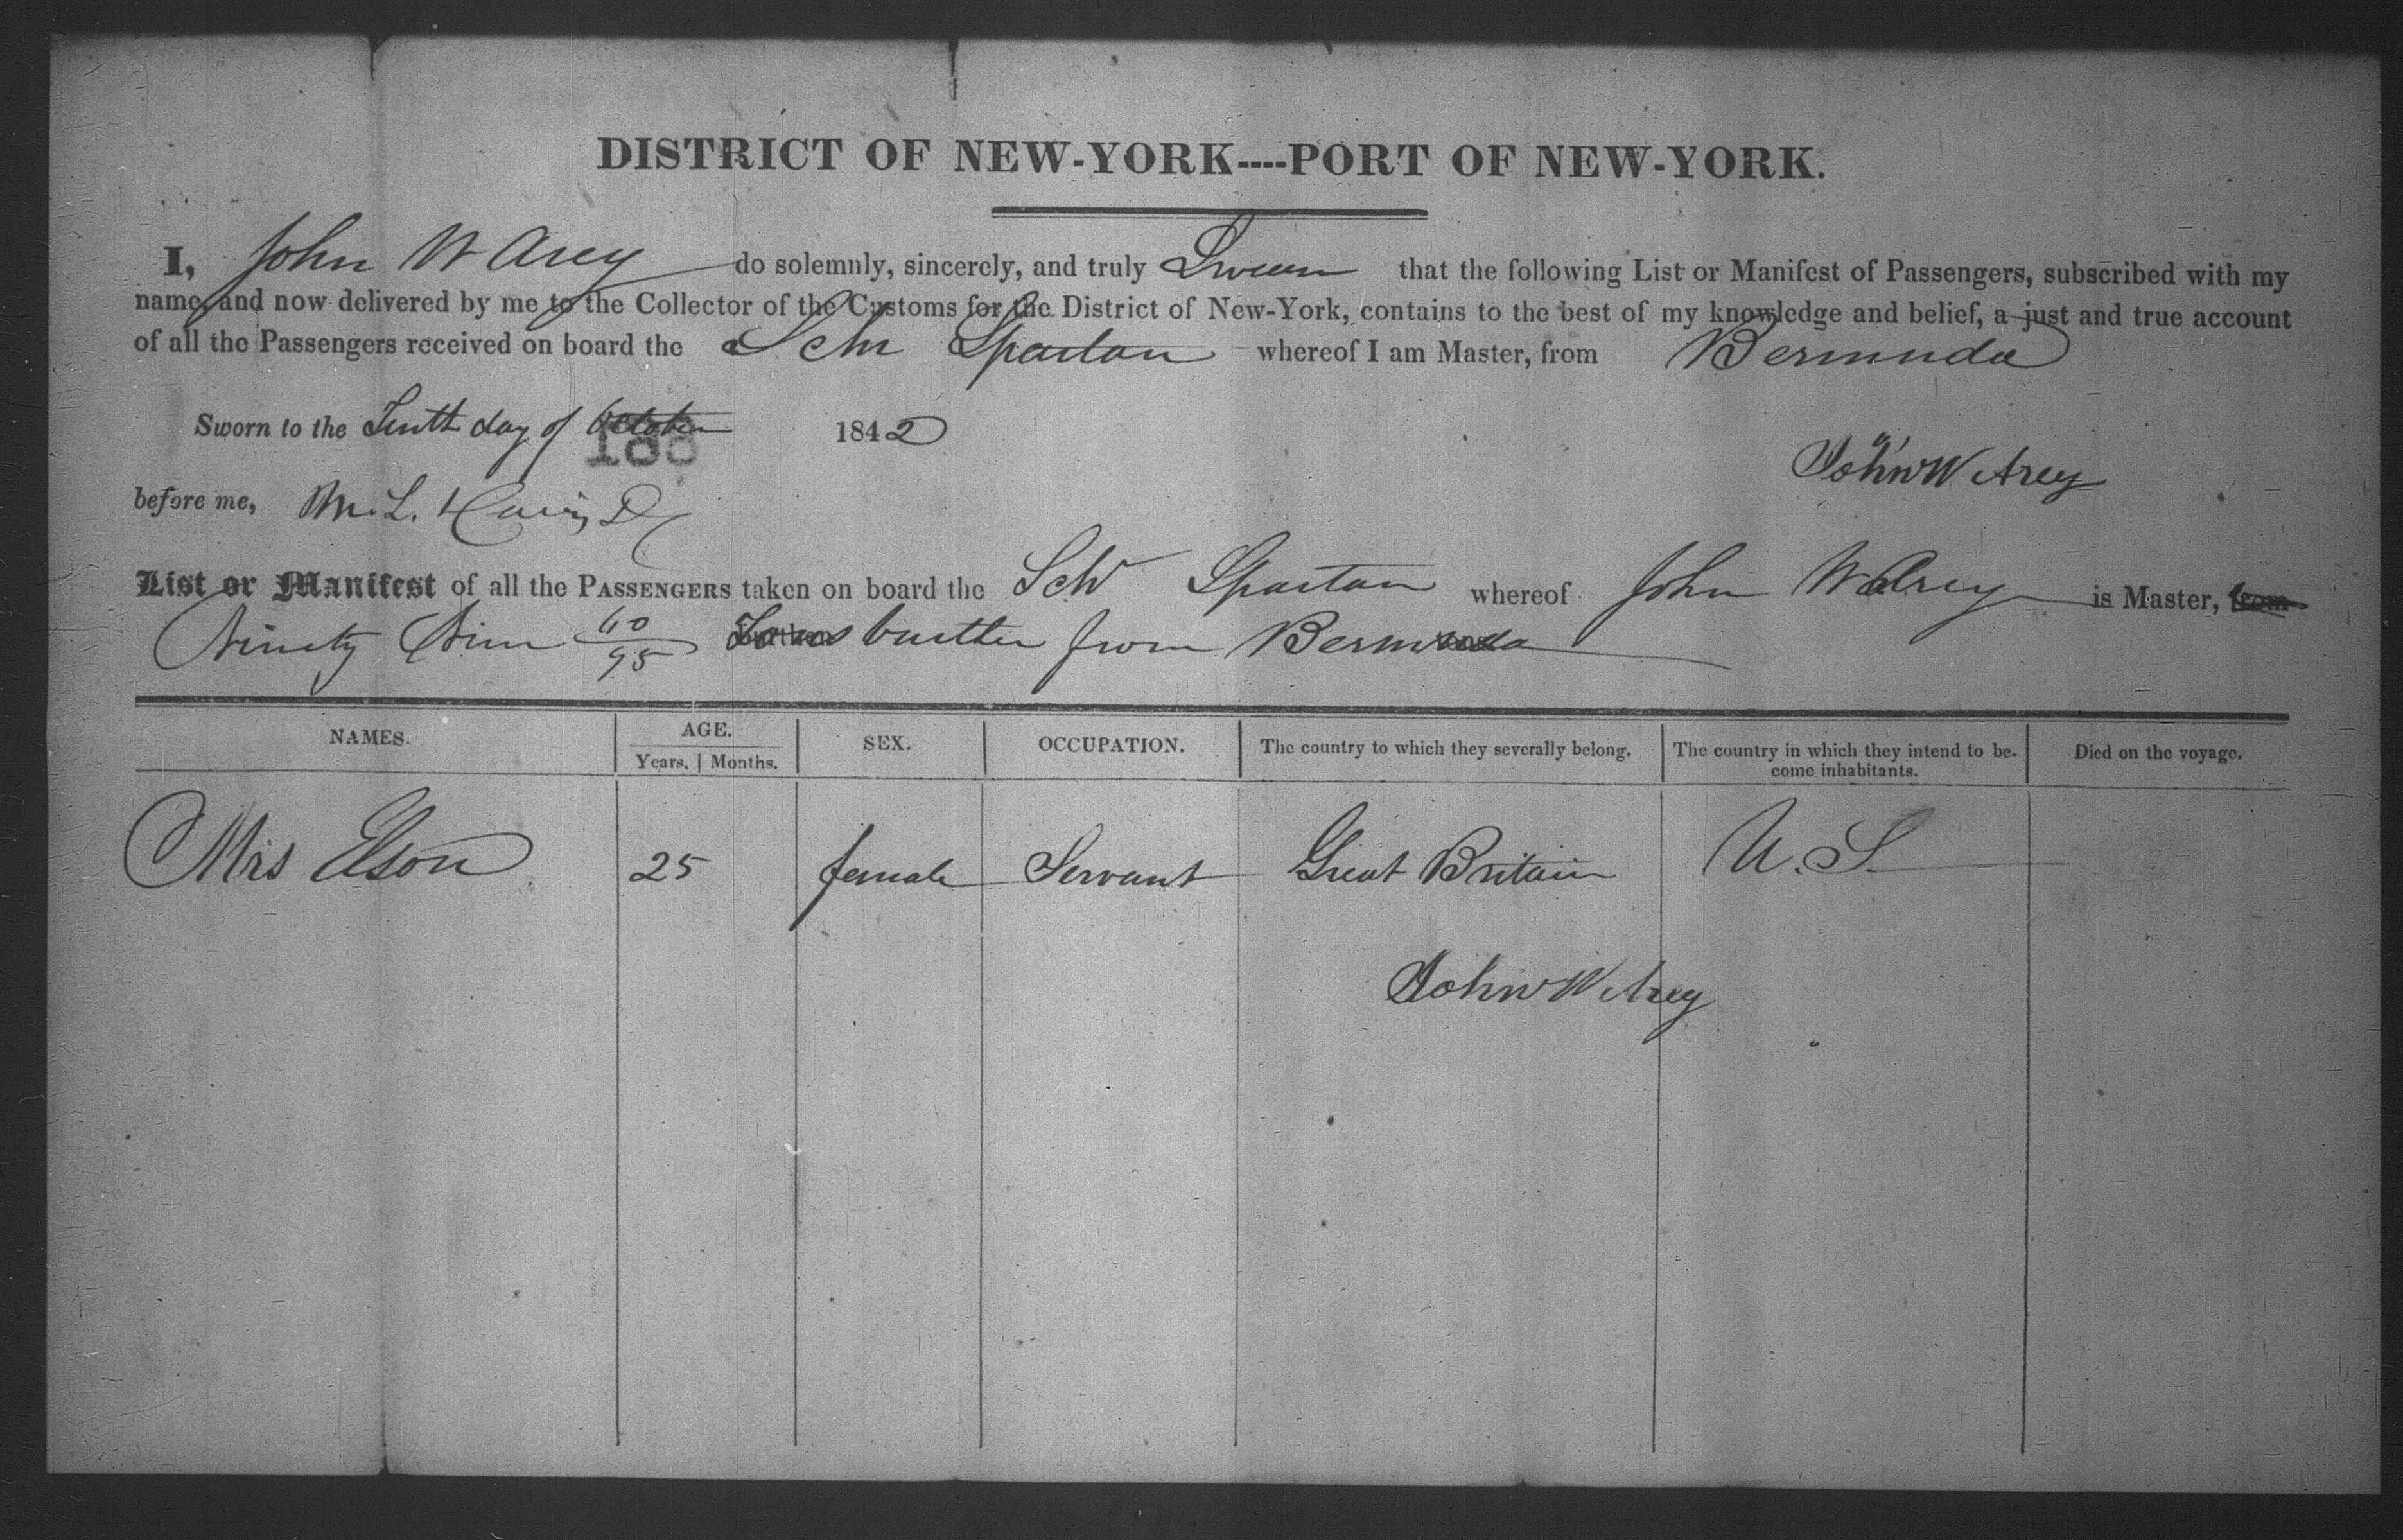 DISTRICT OF NEW-YORK----PORT OF NEW-YORK.
I, John W Arey do solemnly, sincerely, and truly Swear that the following List or Manifest of Passengers, subscribed with my
name, and now delivered by me to the Collector of the Customs for the District of New-York, contains to the best of my knowledge and belief, a just and true account
of all the Passengers received on board the Schr Spartan whereof I am Master, from Bermuda
Sworn to the Tenth day of October 1842
188
John W Arey
before me, M. L.
List or Manifest of all the PASSENGERS taken on board the Schr Spartan whereof John W Arey is Master, from
Ninety Nine 40/95 Tons burthen from Bermuda
NAMES. AGE. SEX. OCCUPATION. The country to which they severally belong. The country in which they intend to be- Died on the voyage.
Years. Months. come inhabitants.
Mrs Elson 25 female Servant Great Britain U.S.
John W Arey